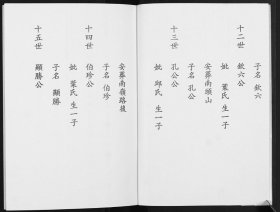 子名 欽六
十二世
欽六公
妣 葉氏 生一子
安葬南坝山
子名 孔公
十三世
孔公公
妣 邱氏 生一子
安葬南嶺路後
子名 伯珍
十四世
伯珍公
妣 葉氏 生一子
子名 顯勝
十五世
顯勝公